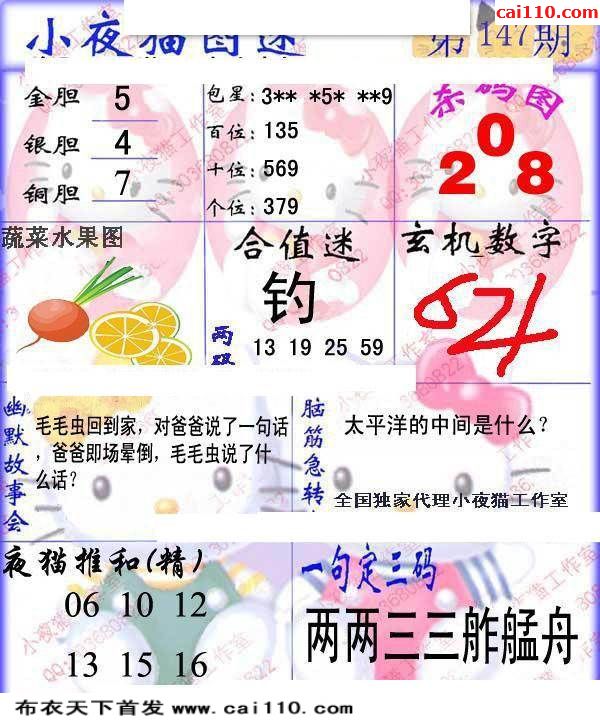 cai110.com
小夜猫图迷
第147期
金胆 5
银胆 4
铜胆 7
包星: 3** *5* **9
百位: 135
十位: 569
个位: 379
条码图
208
蔬菜水果图
合值迷
钓
两码
13 19 25 59
玄机数字
幽默故事会
毛毛虫回到家，对爸爸说了一句话
，爸爸即场晕倒，毛毛虫说了什
么话？
脑筋急转
太平洋的中间是什么？
全国独家代理小夜猫工作室
夜猫推和(精)
06 10 12
13 15 16
一句定三码
两两三三舴艋舟
布衣天下首发 www.cai110.com